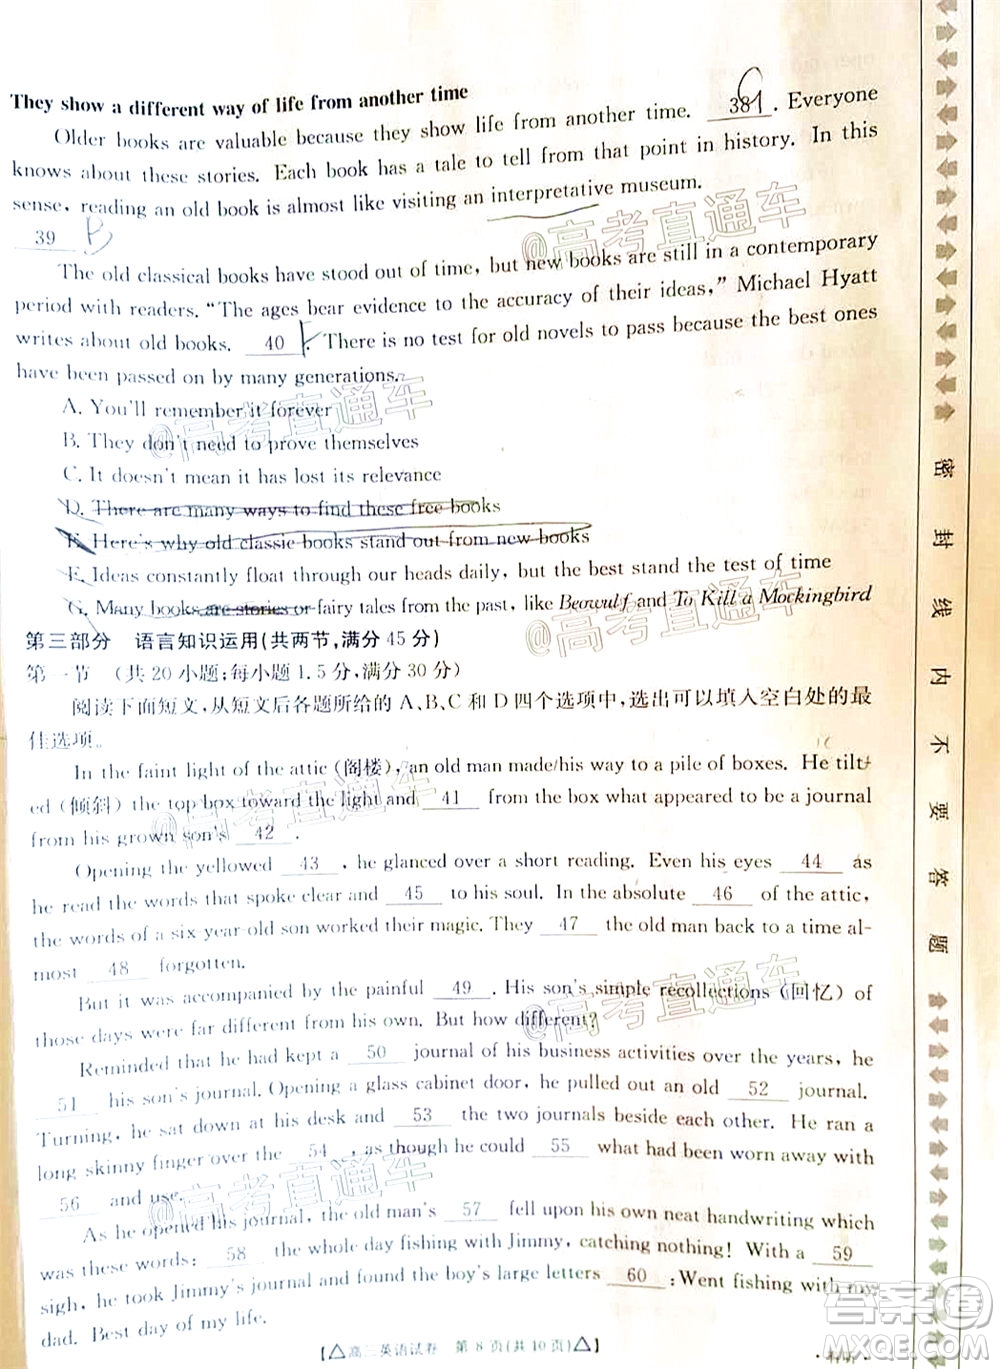 They show a different way of life from another time
Older books are valuable because they show life from another time. 38 G . Everyone
knows about these stories. Each book has a tale to tell from that point in history. In this
sense, reading an old book is almost like visiting an interpretative museum.
39 B
The old classical books have stood out of time, but new books are still in a contemporary
period with readers. “The ages bear evidence to the accuracy of their ideas,” Michael Hyatt
writes about old books. 40 F . There is no test for old novels to pass because the best ones
have been passed down by many generations.
A. You'll remember it forever
B. They don't need to prove themselves
C. It doesn't mean it has lost its relevance
D. There are many ways to find these free books
E. Here's why old classic books stand out from new books
F. Ideas constantly float through our heads daily, but the best stand the test of time
G. Many books are stories or fairy tales from the past, like Beowulf and To Kill a Mockingbird
第三部分 语言知识运用(共两节,满分 45 分)
第一节 (共 20 小题;每小题 1.5 分,满分 30 分)
阅读下面短文,从短文后各题所给的 A、B、C 和 D 四个选项中,选出可以填入空白处的最
佳选项。
In the faint light of the attic (阁楼), an old man made his way to a pile of boxes. He tilt-
ed (倾斜) the top box toward the light and 41 from the box what appeared to be a journal
from his grown son's 42 .
Opening the yellowed 43 , he glanced over a short reading. Even his eyes 44 as
he read the words that spoke clear and 45 to his soul. In the absolute 46 of the attic,
the words of a six-year-old son worked their magic. They 47 the old man back to a time al-
most 48 forgotten.
But it was accompanied by the painful 49 . His son's simple recollections (回忆) of
those days were far different from his own. But how different?
Reminded that he had kept a 50 journal of his business activities over the years, he
51 his son's journal. Opening a glass cabinet door, he pulled out an old 52 journal.
Turning, he sat down at his desk and 53 the two journals beside each other. He ran a
long skinny finger over the 54 , as though he could 55 what had been worn away with
56 and use.
As he opened his journal, the old man's 57 fell upon his own neat handwriting which
was these words: 58 the whole day fishing with Jimmy, catching nothing! With a 59
sigh, he took Jimmy's journal and found the boy's large letters 60 :Went fishing with my
dad. Best day of my life.
【△高三英语试卷 第 8 页(共 10 页)△】
密 封 线 内 不 要 答 题
@高考直通车
@高考直通车
@高考直通车
@高考直通车
@高考直通车
@高考直通车
答案圈
MXQE.COM